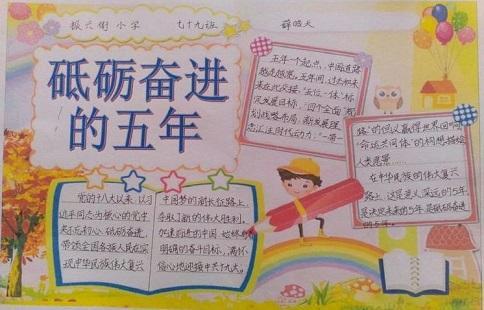 振兴街小学 七十九班 薛皓天
砥砺奋进
的五年
五年一个起点，中国道路
越走越宽。五年间，过去和未
来在此交接，"五位一体"标
定发展目标，"四个全面"擘
划战略布局，新发展理
念汇注时代动力；"一带一
路"的倡议赢得世界回响，
"命运共同体"的构想描绘
人类愿景……
在中华民族的伟大复兴
路上，这是意义深远的5年，
是决定未来的5年，是砥砺奋进
的5年。
党的十八大以来，以习
近平同志为核心的党中
央不忘初心，砥砺奋进，
带领全国各族人民在实
现中华民族伟大复兴
中国梦的新长征路上，
夺取了新的伟大胜利，
加速前进的中国，始终有
明确的奋斗目标，满怀
信心地迎接中共十九大。